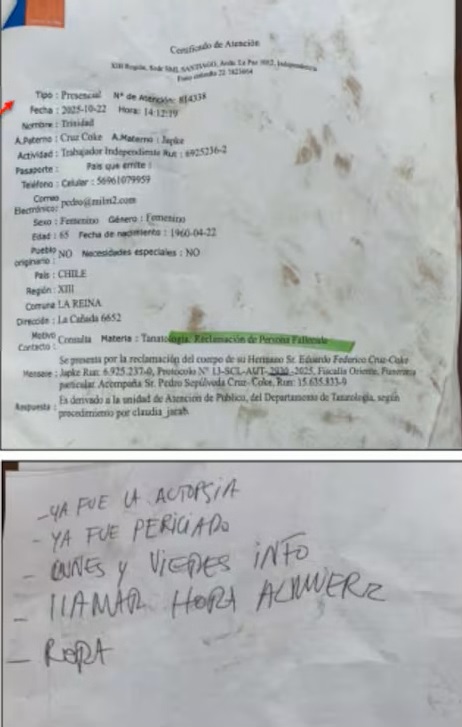 Certificado de Atención
XIII Región, Sede SML SANTIAGO, Avda. La Paz 1012, Independencia
Tipo : Presencial Nº de Atención: 814338
Fecha : 2025-10-22 Hora: 14:12:19
Nombre : Trinidad
A.Paterno : Cruz Coke A.Materno : Japke
Actividad : Trabajador Independiente Run : 6925236-2
Pasaporte : País que emite :
Teléfono : Celular : 56961079959
Correo
Electrónico: pedro@milm2.com
Sexo : Femenino Género : Femenino
Edad : 65 Fecha de nacimiento : 1960-04-22
Pueblo
originario : NO Necesidades especiales : NO
País : CHILE
Región : XIII
Comuna : LA REINA
Dirección : La Cañada 6652
Motivo
Contacto : Consulta Materia : Tanatología, Reclamación de Persona Fallecida
Se presenta por la reclamación del cuerpo de su Hermano Sr. Eduardo Federico Cruz-Coke
Mensaje : Japke Run: 6.925.237-0, Protocolo Nº 13-SCL-AUT- -2025, Fiscalía Oriente, Funeraria
particular. Acompaña Sr. Pedro Sepúlveda Cruz- Coke, Run: 15.635.833-9
Respuesta : Es derivado a la unidad de Atención de Público, del Departamento de Tanatología, según
procedimiento por claudia_jarab.
- YA FUE LA AUTOPSIA
- YA FUE PERICIADO
- LUNES y VIERNES INFO
- LLAMAR HORA ALMUERZ
- ROPA